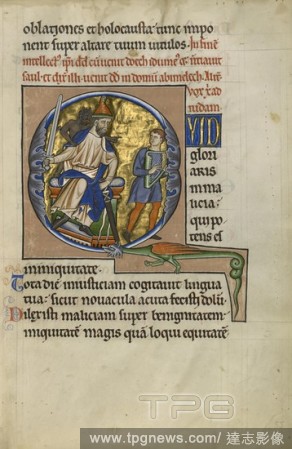 oblationes et holocausta tunc impo
nent super altare tuum vitulos. In fine
intellect' ipi dd cu venit doech idume' et nuntiavit
saul et dix illi venit dd in domu abimelech.
vox xp ad
iudam.
QUID
glori
aris
in ma
licia:
qui po
tens es
in iniquitate.
Tota die iniusticiam cogitavit lingua
tua: sicut novacula acuta fecisti dolu.
Dilexisti maliciam super benignitatem:
iniquitate magis qua loqui equitate
TPG
www.tpgnews.com / 達志影像